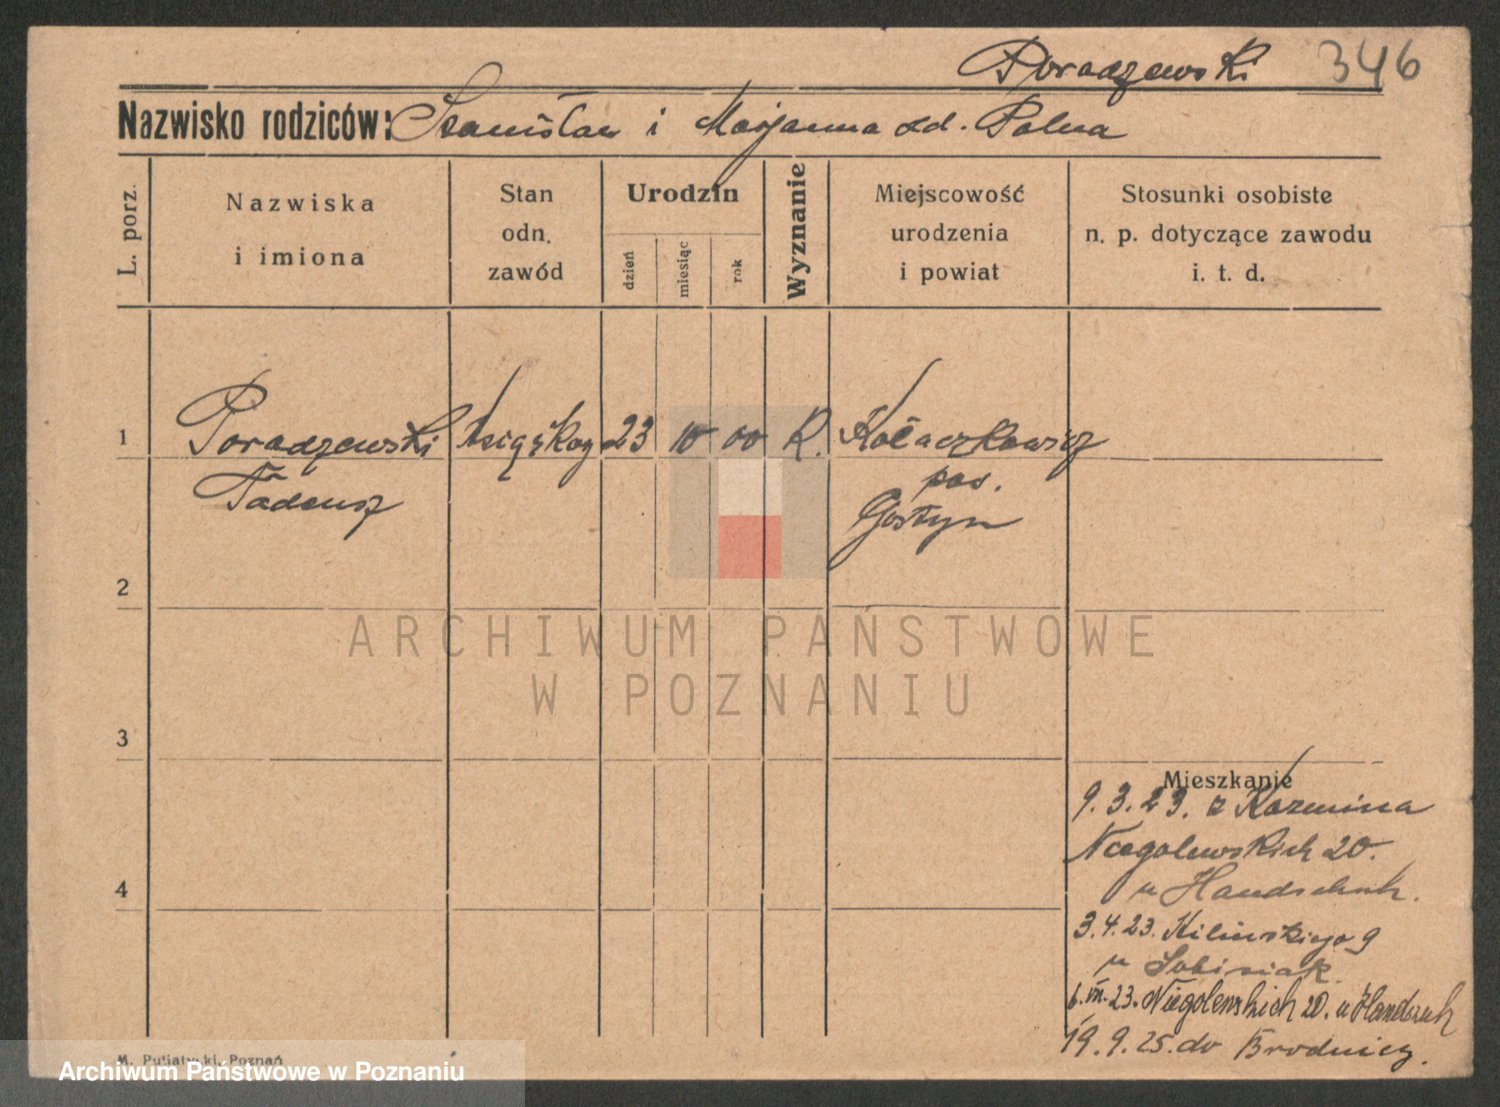 Poradzewski 346
Nazwisko rodziców: Stanisław i Marjanna zd. Polna
L. porz.
Nazwiska
i imiona
Stan
odn.
zawód
Urodzin
dzień
miesiąc
rok
Wyznanie
Miejscowość
urodzenia
i powiat
Stosunki osobiste
n. p. dotyczące zawodu
i. t. d.
1 Poradzewski książkog 23 10 00 R. Kołaczkowicz
Tadeusz
pow.
Gostyn
2
3
4
ARCHIWUM PAŃSTWOWE
W POZNANIU
Mieszkanie
9.3.23. z Kozmina
Niegolewskich 20.
u Handschuh.
3.4.23. Kilińskiego 9
u Sobisiak.
6.VII.23. Niegolewskich 20. u Handszuh
19.9.25. do Brodnicy.
M. Putiatycki, Poznań
Archiwum Państwowe w Poznaniu